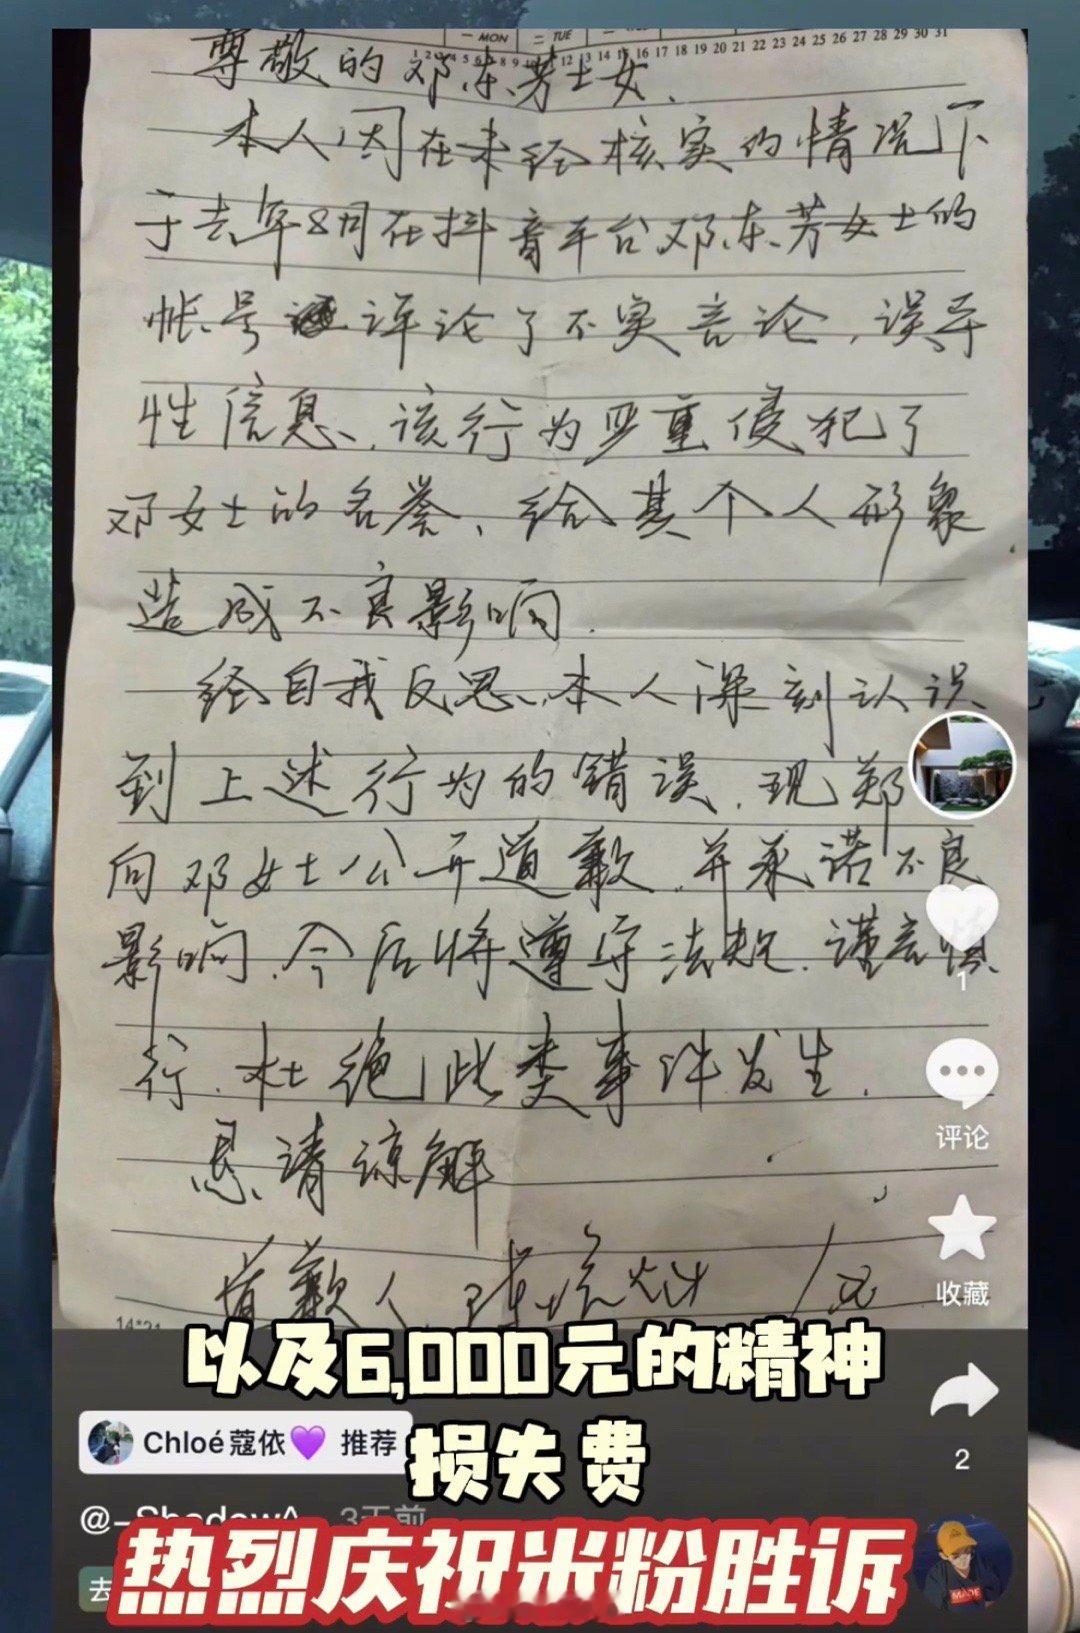 一 MON 二 TUE
1 2 3 4 5 6 7 8 9 10 11 12 13 14 15 16 17 18 19 20 21 22 23 24 25 26 27 28 29 30 31
尊敬的邓东芳士女.
本人因在未经核实的情况下
于去年8月在抖音平台邓东芳女士的
帐号评论了不实言论,误导
性信息,该行为严重侵犯了
邓女士的名誉、给其个人形象
造成不良影响.
经自我反思,本人深刻认识
到上述行为的错误.现郑
向邓女士公开道歉.并承诺不良
影响.今后将遵守法规.谨言慎
行.杜绝此类事件发生.
恳请谅解
道歉人
14*21
1
评论
收藏
2
以及6,000元的精神
损失费
Chloé蔻依💜 推荐
@-ShadowA 3天前
去
热烈庆祝米粉胜诉
MADE